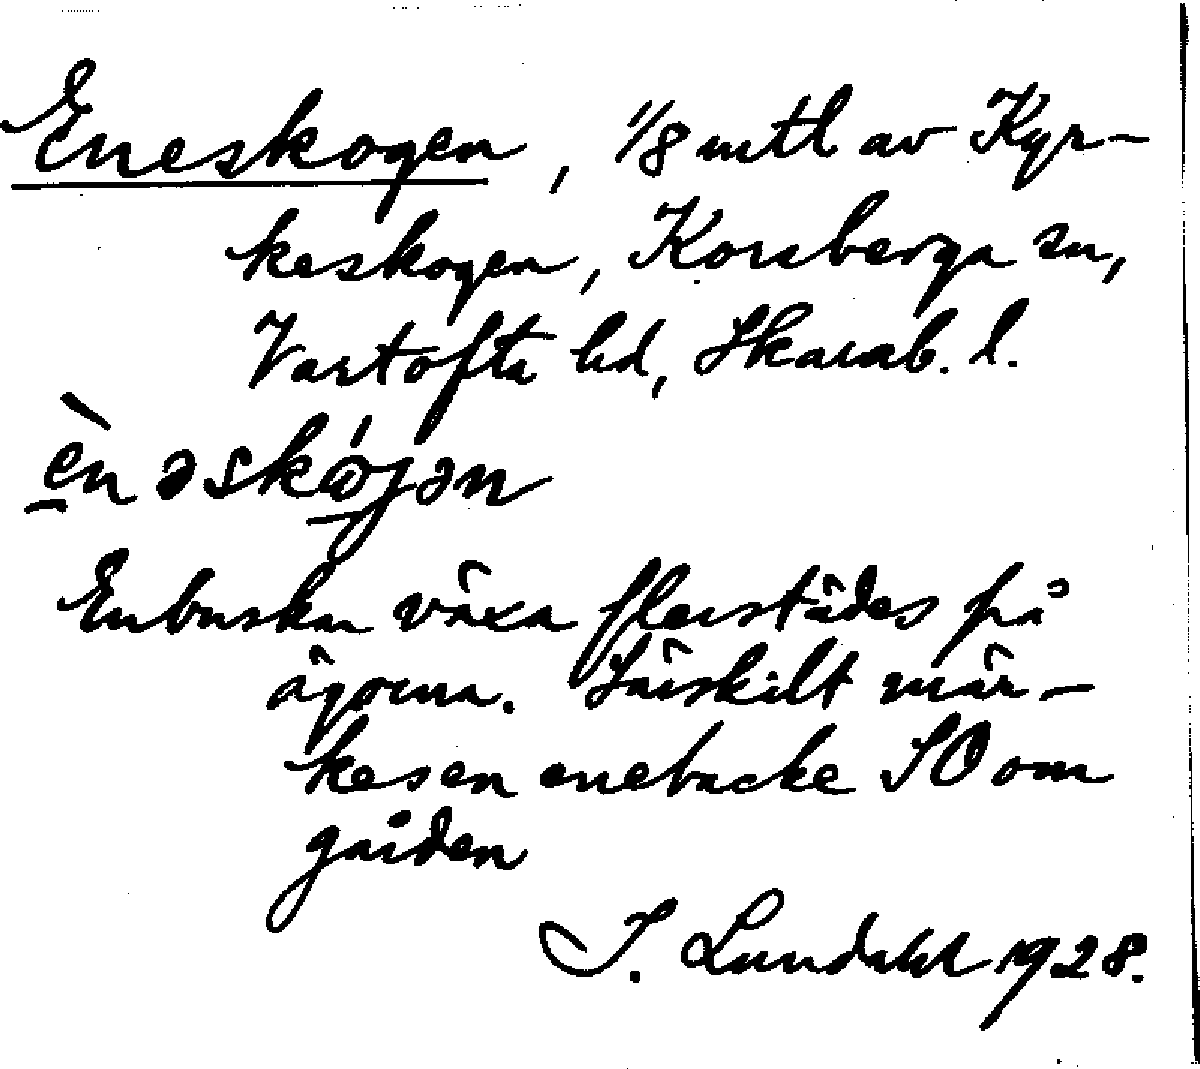 Eneskogen, 1/8 mtl av Kyr-
keskogen, Korsberga sn,
Vartofta hd, Skarab. l.
Enbuskar växa flerstädes på
ägorna. Särskilt mär-
kes en enebacke SO om
gården
I. Lundahl 1928.